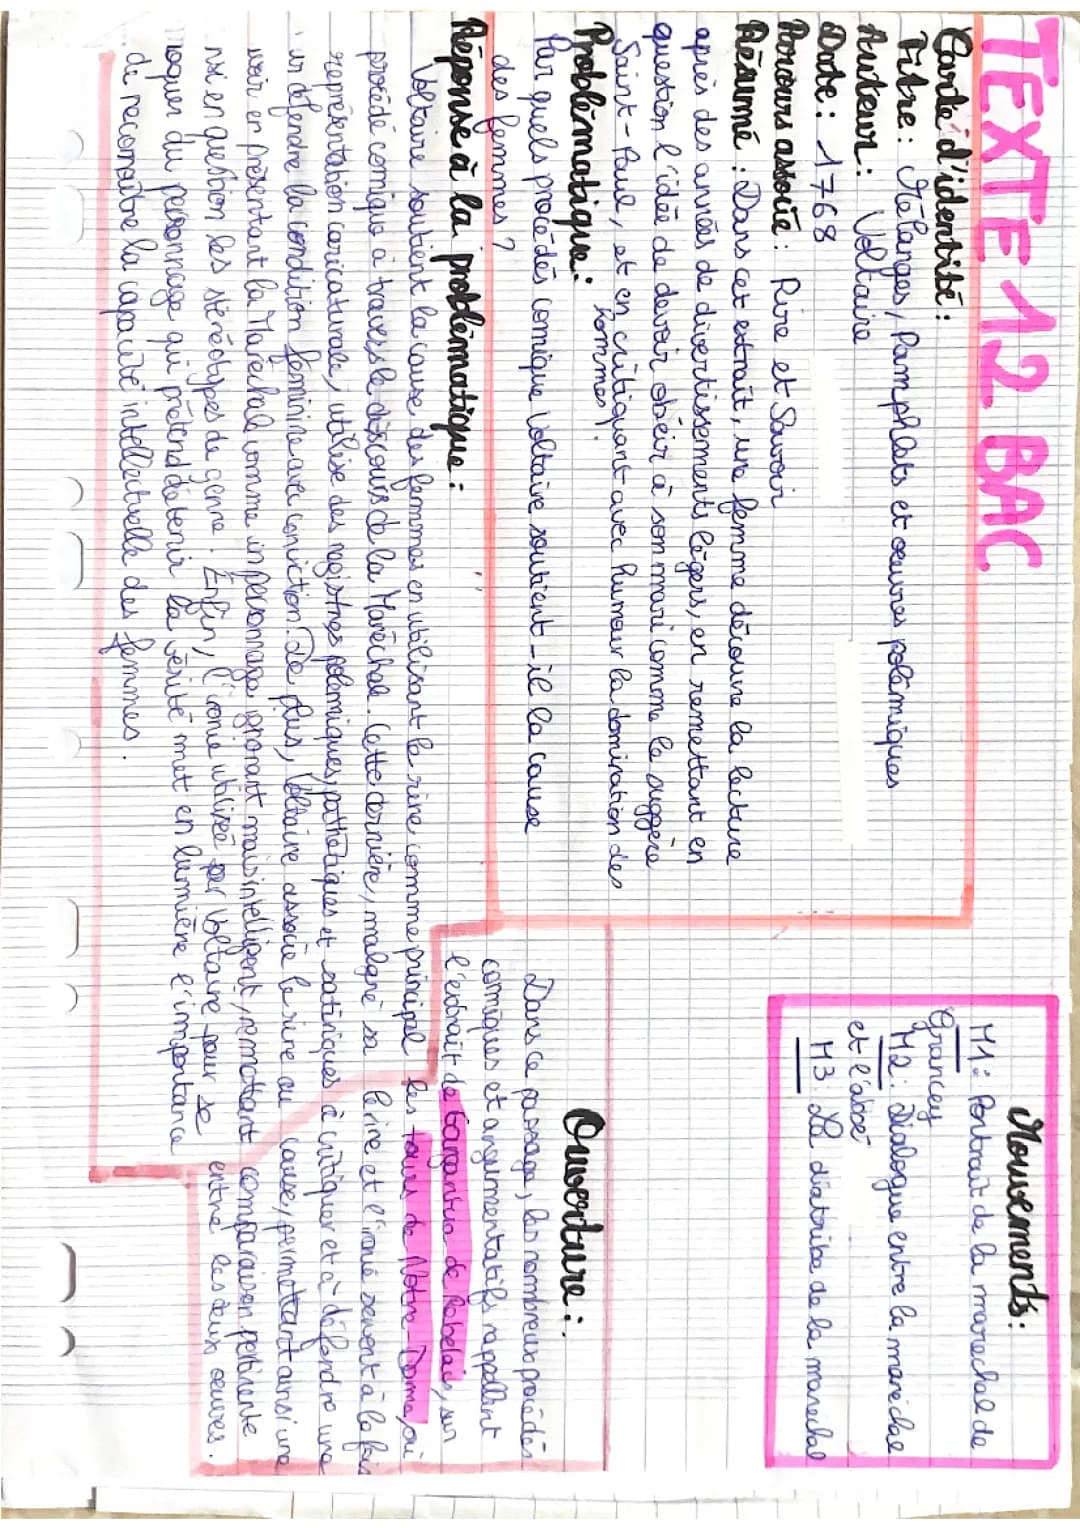 TEXTE 12 BAC
Carte d'identité :
Titre : Mélanges, Pamphlets et œuvres polémiques
Auteur : Voltaire
Date : 1768
Parcours associé : Rire et Savoir
Résumé : Dans cet extrait, une femme découvre la lecture
après des années de divertissements légers, en remettant en
question l'idée de devoir obéir à son mari comme le suggère
Saint-Paul, et en critiquant avec humour la domination des
hommes.
Problématique :
Par quels procédés comique Voltaire soutient-il la cause
des femmes ?
Réponse à la problématique :
Voltaire soutient la cause des femmes en utilisant le rire comme principal
procédé comique à travers le discours de la Maréchal. Cette dernière, malgré sa
représentation caricaturale, utilise des registres polémiques, pathétiques et satiriques à critiquer et à
défendre la condition féminine avec conviction. De plus, Voltaire associe le rire au
savoir en présentant la Maréchal comme un personnage ignorant mais intelligent, remettant
ainsi en question les stéréotypes de genre. Enfin, l'ironie utilisée par Voltaire pour se
moquer du personnage qui prétend détenir la vérité met en lumière l'importance
de reconnaître la capacité intellectuelle des femmes.
Mouvements :
M1 : Portrait de la marechal de
Grancey
M2 : Dialogue entre la maréchal
et l'abbé
M3 : La diatribe de la marechal
Ouverture :
Dans ce passage, les nombreux procédés
comiques et argumentatifs rappellent
l'extrait de Gargantua de Rabelais, sur
les tours de Notre-Dame, où
le rire et l'ironie servent à la fois
défendre une
cause, permettant ainsi une
comparaison pertinente
entre les deux œuvres.